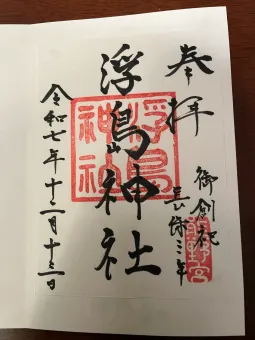 奉拝
御創祀
長保三年
浮島神社
浮島神社
令和七年十二月十三日